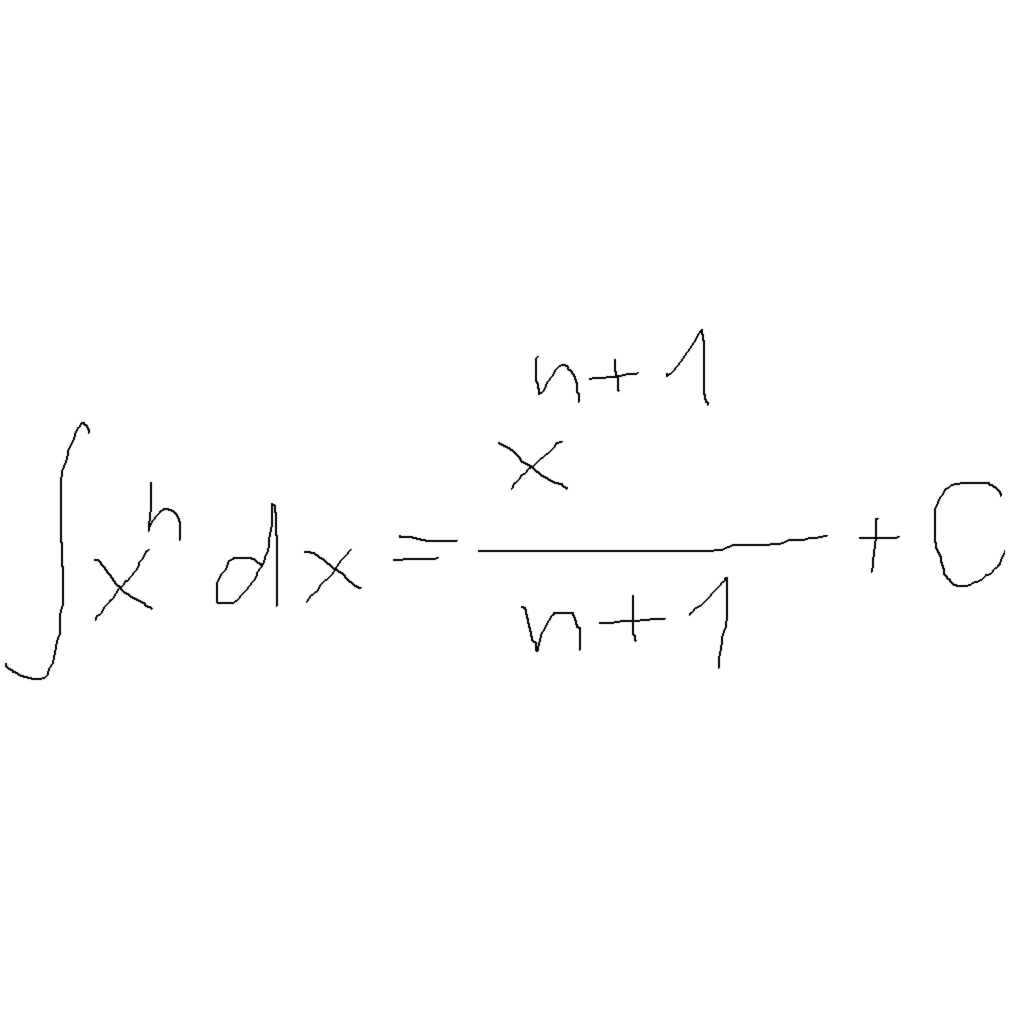 ∫xⁿ dx = xⁿ⁺¹/(n+1) + C